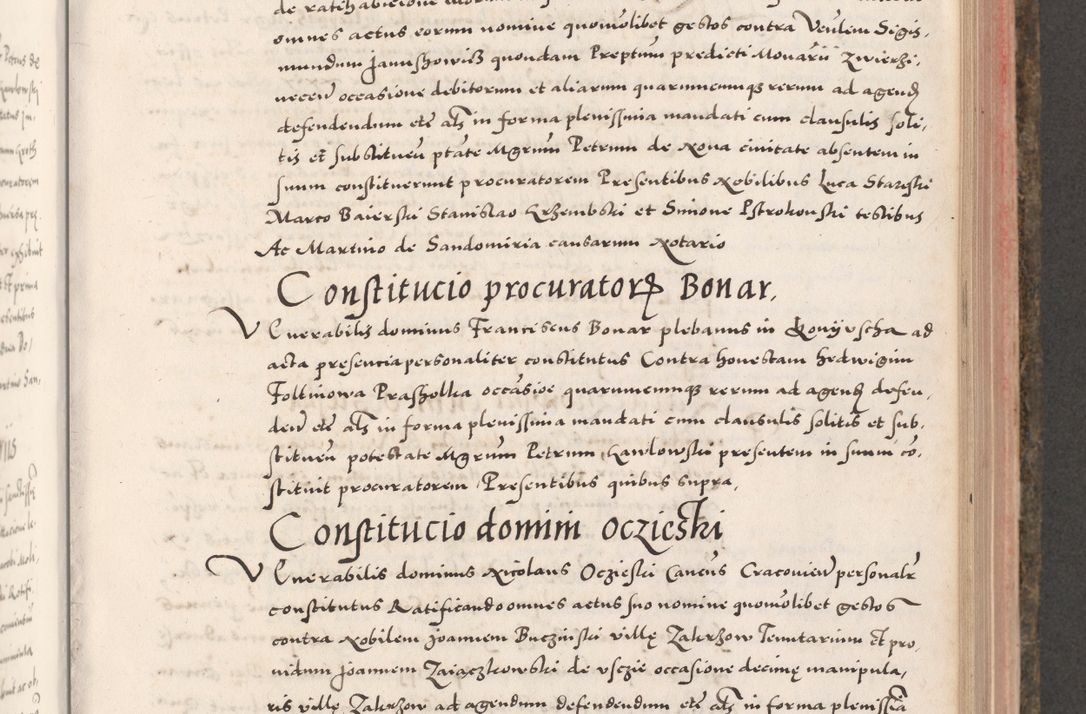 omnes actus eorum nomine quomolibet gestos contra Venlem Sigis,
mundum Januszowicz quondam Preptum predicti Monarii Zwierzi,
necen occasione debitorum et aliarum quarumcumq rerum ad agend
defendendum etc als in forma plenissima mandati cum clausulis soli,
tis et substituen ptate Mgrum Petrum de Nova civitate absentem in
suum constituerunt procuratorem Presentibus Nobilibus Luca Starzski
Marco Baierski Stanislao Krzembski et Simone Pstrokonski testibus
Ac Martino de Sandomiria causarum Notario
Constitucio procurator Bonar,
Venerabilis dominus Franciscus Bonar plebanus in Konyuscha ad
acta presencia personaliter constitutus Contra honestam hedwigim
Foltinowa Praszolka occasioe quarumcumq rerum ad agend defen,
den etc als in forma plenissima mandati cum clausulis solitis et sub,
stituen potestate Mgrum Petrum Gawlowski presentem in suum co,
stituit procuratorem Presentibus quibus supra,
Constitucio domini Oczieski
Venerabilis dominus Nicolaus Oczieski Cancus Cracovien personalr
constitutus Ratificando omnes actus suo nomine quomolibet gestos
contra Nobilem Joannem Buczinski ville Zakrzow Tenutarium Et pro,
vidum Joannem Zaiaczkowski de Usczie occasione decime manipula,
ris ville Zakrzow ad agendum defendendum etc als in forma plenissia